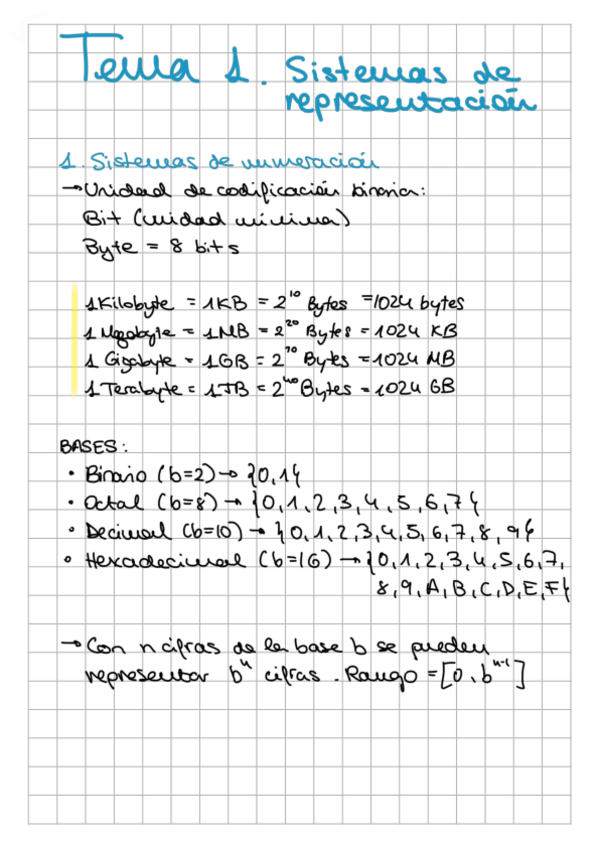 Tema 1. Sistemas de
representación
1. Sistemas de numeración
→ Unidad de codificación binaria:
Bit (unidad mínima)
Byte = 8 bits
1 Kilobyte = 1KB = 2^10 Bytes = 1024 bytes
1 Megabyte = 1MB = 2^20 Bytes = 1024 KB
1 Gigabyte = 1GB = 2^70 Bytes = 1024 MB
1 Terabyte = 1TB = 2^40 Bytes = 1024 GB
BASES:
• Binario (b=2) → {0,1}
• Octal (b=8) → {0,1,2,3,4,5,6,7}
• Decimal (b=10) → {0,1,2,3,4,5,6,7,8,9}
• Hexadecimal (b=16) → {0,1,2,3,4,5,6,7,
8,9,A,B,C,D,E,F}
→ Con n cifras de la base b se pueden
representar b^n cifras. Rango = [0, b^n-1]